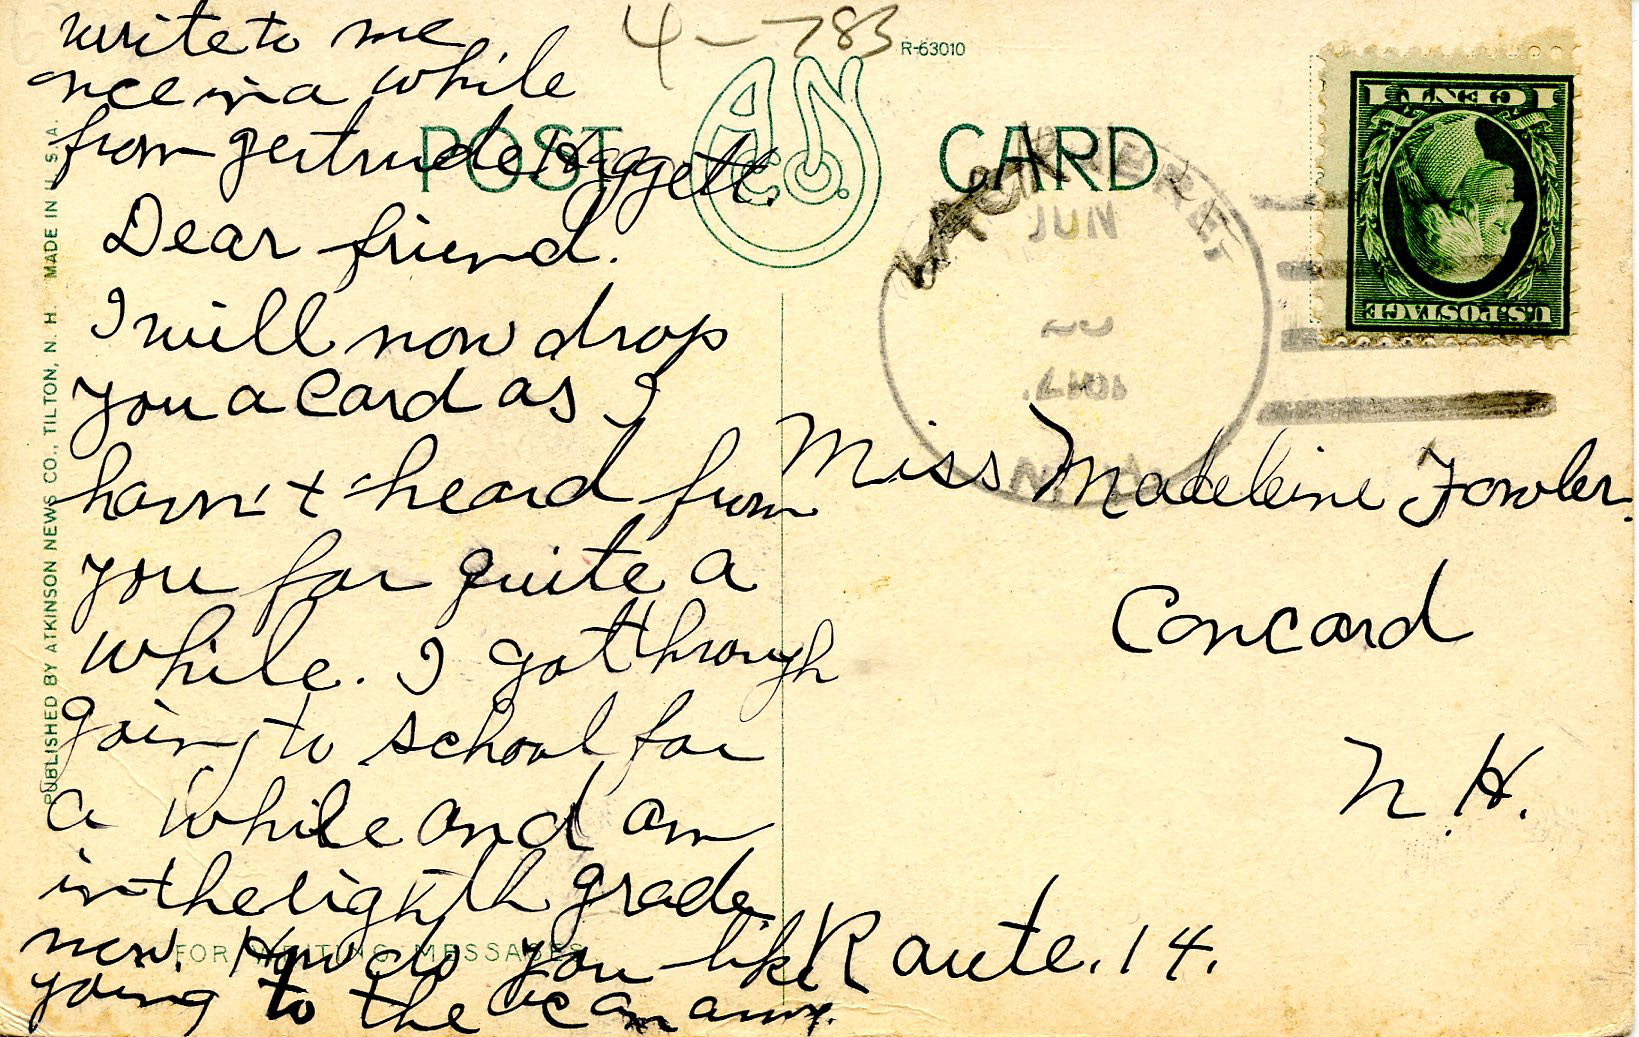 write to me
once in a while
from Gertrude Haggett.
4-783
R-63010
POST CARD
A N CO.
Dear friend.
I will now drop
you a card as I
havn't heard from
you for quite a
while. I got through
going to school for
a while and am
in the eighth grade
now. How do you like
going to the
Miss Madeleine Fowler.
Concord
N.H.
Route. 14.
JUN
N.H.
1 CENT 1
U.S. POSTAGE
FOR WRITING MESSAGES
PUBLISHED BY ATKINSON NEWS CO., TILTON, N. H. MADE IN U.S.A.